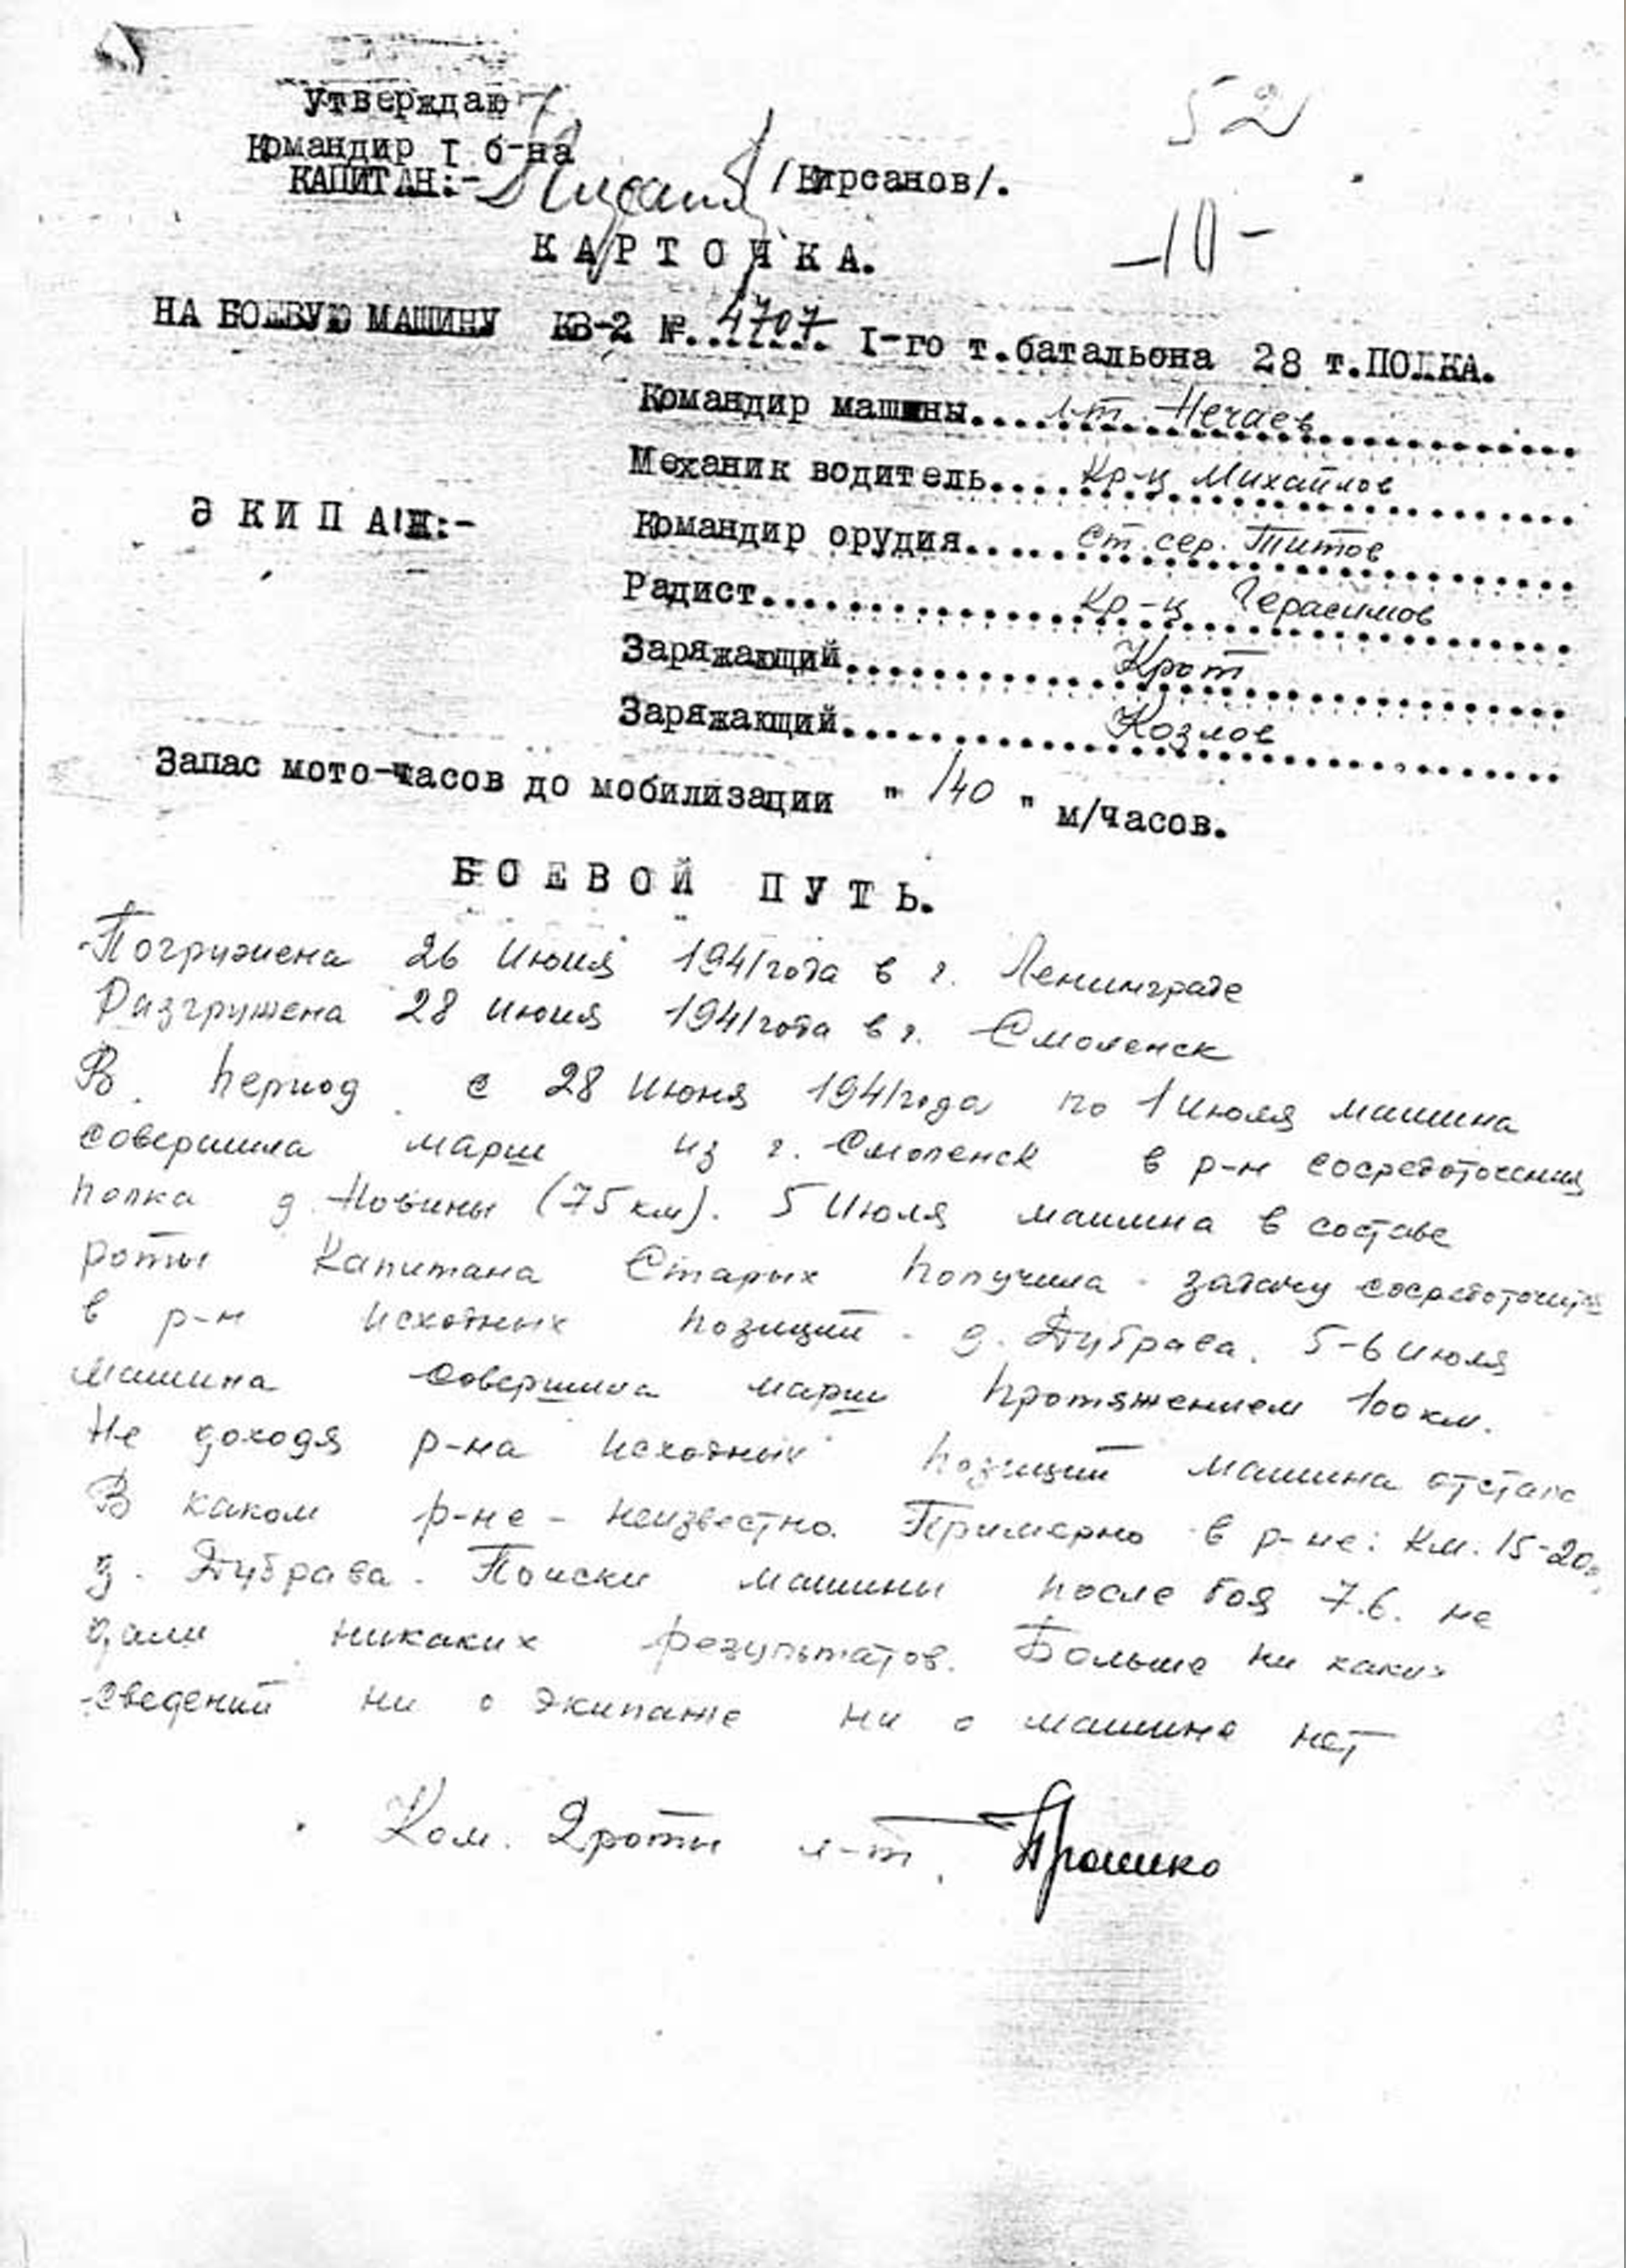 52
Утверждаю
Командир I б-на
КАПИТАН:- /Кирсанов/.
-10-
КАРТОЧКА.
НА БОЕВУЮ МАШИНУ КВ-2 №.4707. I-го т.батальона 28 т.ПОЛКА.
Командир машины....л-т. Нечаев
Механик водитель....Кр-ц Михайлов
ЭКИПАЖ:-
Командир орудия.....Ст. сер. Титов
Радист..............Кр-ц Герасимов
Заряжающий.........Крот
Заряжающий.........Козлов
Запас мото-часов до мобилизации "140" м/часов.
БОЕВОЙ ПУТЬ.
Погружена 26 Июня 1941года в г. Ленинграде
Разгружена 28 Июня 1941года в г. Смоленск
В период с 28 Июня 1941года по 1 Июля машина
совершила марш из г. Смоленск в р-н сосредоточения
полка д. Новины (75 км). 5 Июля машина в составе
роты Капитана Старых получила задачу сосредоточится
в р-н исходных позиций - д. Дубрава. 5-6 Июля
машина совершила марш протяжением 100 км.
Не доходя р-на исходных позиций машина отстала
В каком р-не - неизвестно. Примерно в р-не: Км. 15-20
д. Дубрава. Поиски машины после боя 7.6. не
дали никаких результатов. Больше ни каких
сведений ни о экипаже ни о машине нет
Ком. 2роты л-т.